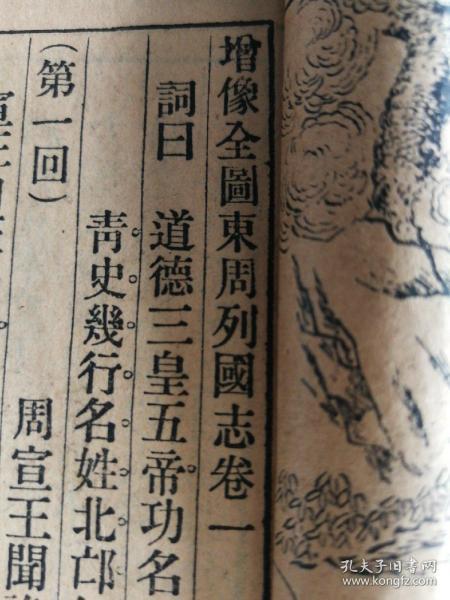 增像全圖東周列國志卷一
詞曰 道德三皇五帝功名
青史幾行名姓北邙
（第一回） 周宣王聞
孔夫子旧书网
www.kongfz.com